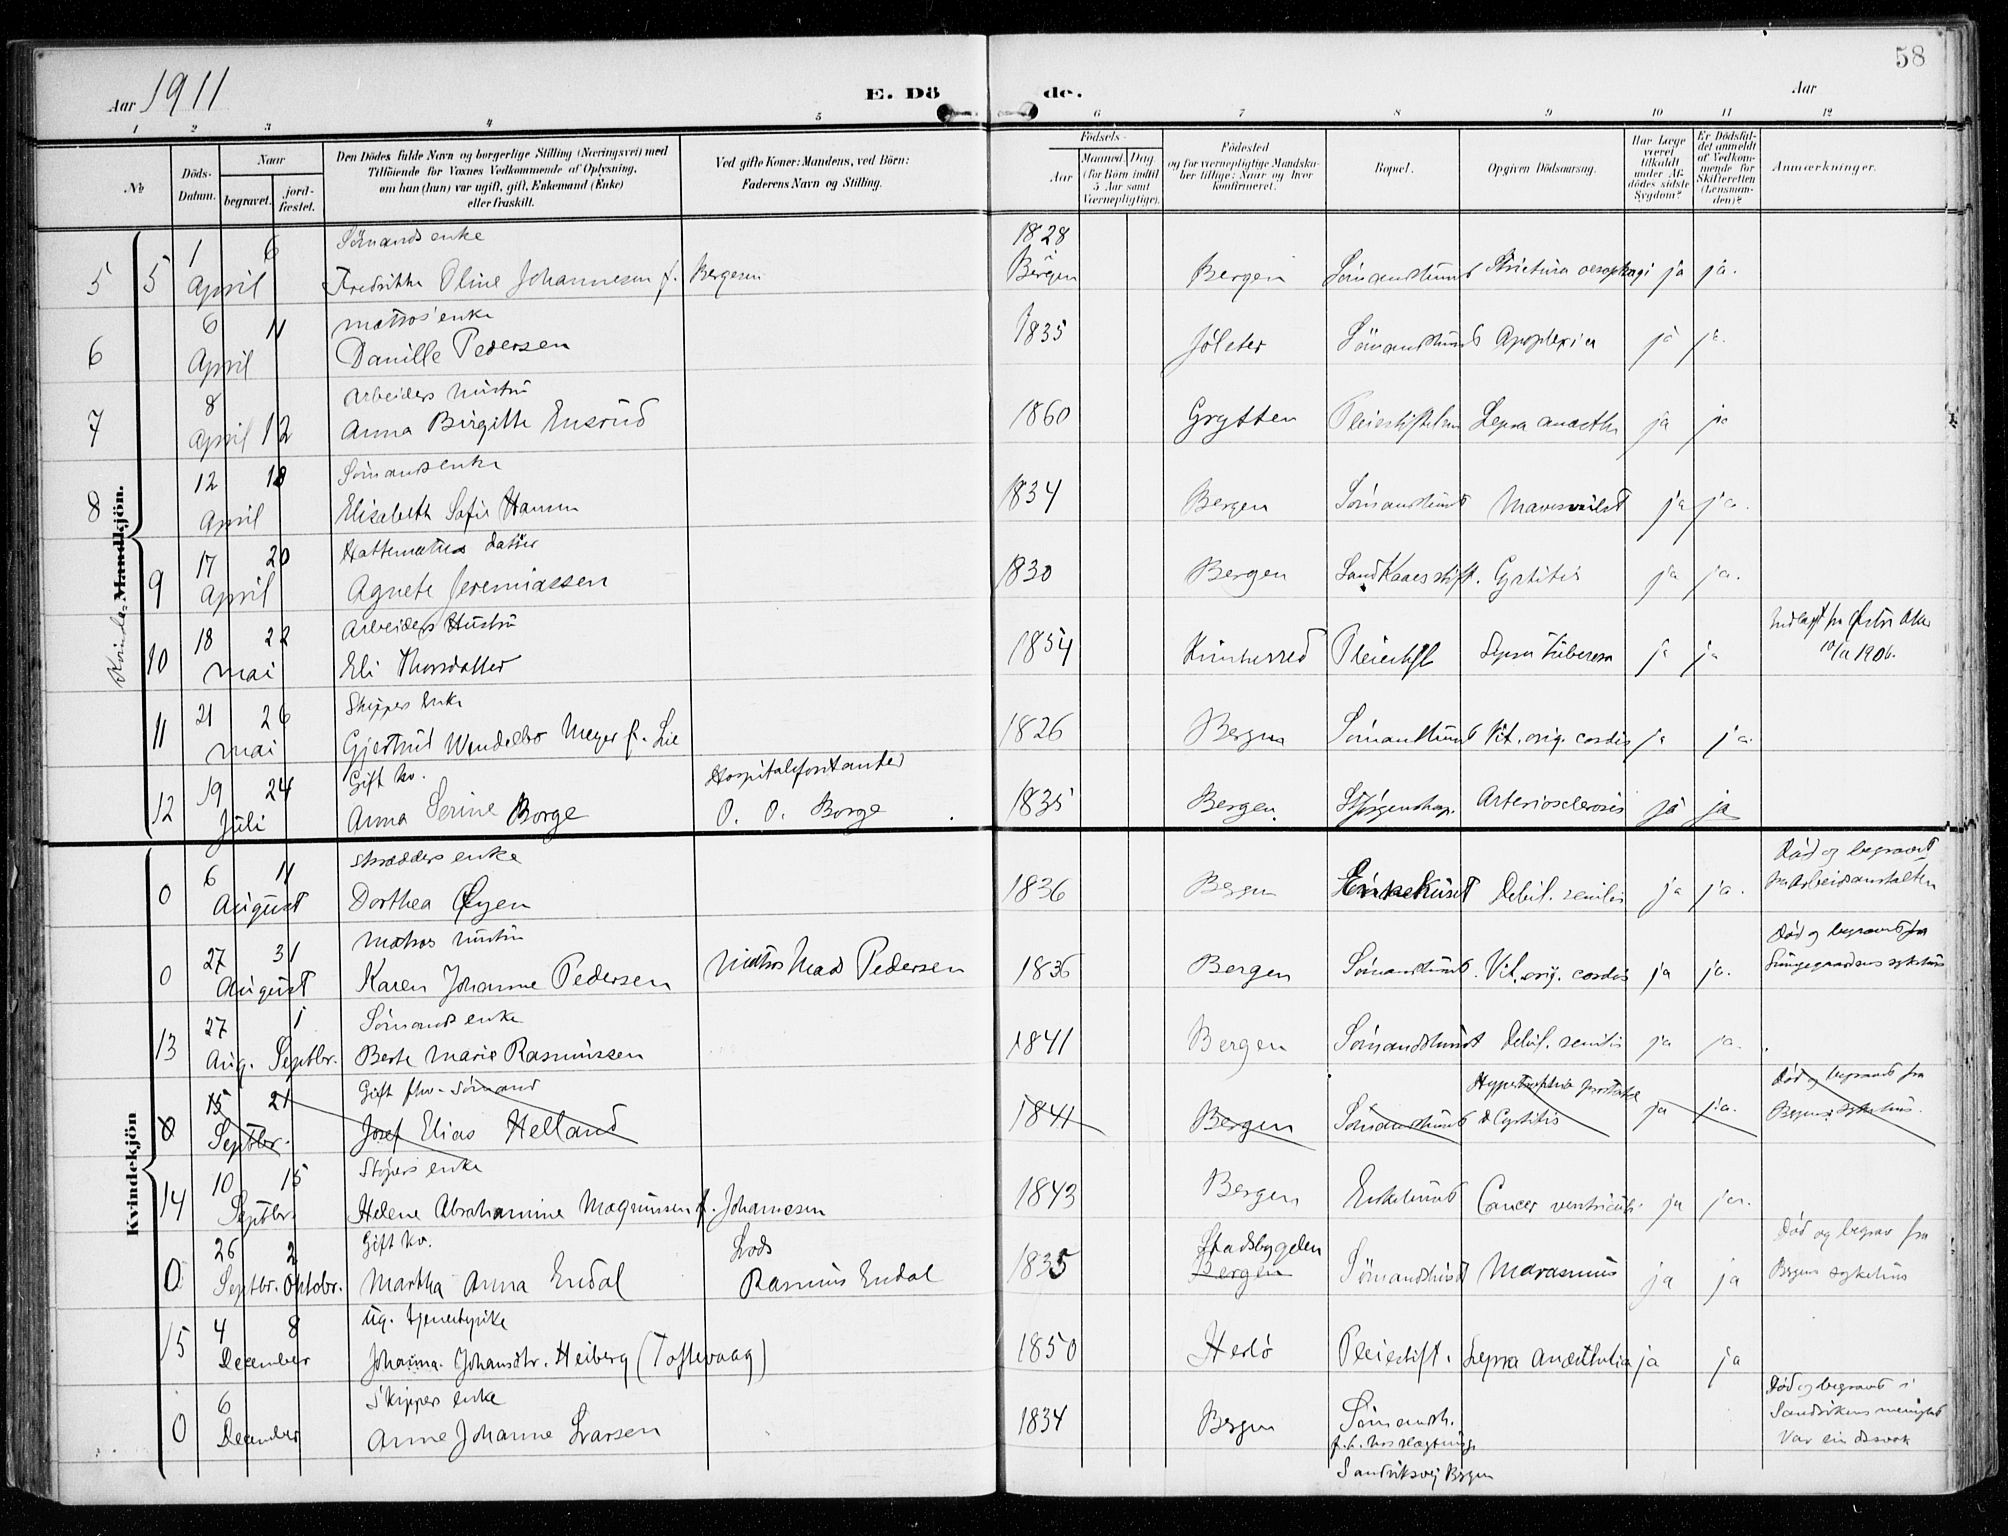 58
Aar 1911
E. Dö
de.
Aar
1 2 3 4 5 6 7 8 9 10 11 12
№
Döds-Datum.
Naar
begravet.
jord-fæstet.
Den Dödes fulde Navn og borgerlige Stilling (Næringsvei) med
Tilföiende for Voxnes Vedkommende af Oplysning,
om han (hun) var ugift, gift, Enkemand (Enke)
eller fraskilt.
Ved gifte Koner: Mandens, ved Börn:
Faderens Navn og Stilling.
Födsels-
Aar
Maaned. Dag.
(for Börn indtil
5 Aar samt
Værnepligtige).
Födested
og for værnepligtige Mandska-
ber tillige: Naar og hvor
konfirmeret.
Bopæl.
Opgiven Dödsaarsag.
Har Læge
været
tilkaldt
under Af-
dödes sidste
Sygdom?
Er Dödsfal-
det anmeldt
af Vedkom-
mende for
Skifteretten
(Lensman-
den)?
Anmærkninger.
Kvinde-Mandkjön.
Sömands enke 1828
5 5 1 April 6 Fredrikke Oline Johannesen f. Bergesen Bergen Bergen Strictura oesophagi ja ja.
matros' enke
6 6 April 11 Danille Pedersen 1835 Jölster Apoplexia ja ja.
Arbeiders hustru
7 8 April 12 Anna Birgitte Ensrud 1860 Grytten Pleiestiftelsen Lepra anæsth ja ja
Sömands enke
8 12 April 18 Elisabeth Sofie Hansen 1834 Bergen ja ja.
datter
9 17 April 20 Agnete Jeremiassen 1830 Bergen Cystitis ja ja.
Arbeiders Hustru
10 18 mai 22 Eli Thorsdatter 1854 Kinherred Pleiestift Lepra tuberosa ja ja Indlagt fra
1906.
Skippers Enke
11 21 mai 26 Gjertrud Wendelbo Meyer f. Lie 1826 Bergen Vit. orig. cordis ja ja.
Gift kv. Hospitalsforstander
12 19 Juli 24 Anna Serine Borge O. O. Borge 1835 Bergen Arteriosclerosis ja ja
Kvindekjön
Skrædders enke Död og begravet
0 6 August 11 Dorthea Öyen 1836 Bergen Enkehuset Debil. senilis ja ja. fra Arbeidsanstalten
Matros hustru Död og begravet fra
0 27 August 31 Karen Johanne Pedersen Matros Mads Pedersen 1836 Bergen Vit. orig. cordis ja ja. Lungegaardens sykehus
Sömands enke
13 27 Aug. 1 Septbr. Berte Marie Rasmussen 1841 Bergen Sömandshuset Debil. senilis ja ja.
Gift fhv. Sömand Hypertrophia prostatae Död og begravet fra
0 15 Septbr. 21 Josef Elias Helland 1841 Bergen & Cystitis ja ja. Bergens sykehus.
enke
14 10 Septbr. 15 Helene Abrahamine Magnussen f. Johannesen 1843 Bergen Enkehuset Cancer ventriculi ja ja.
Gift kv. Lods Stadsbygden Död og begrav fra
0 26 Septbr. 2 Oktobr. Martha Anna Endal Rasmus Endal 1835 Bergen Sömandshuset Marasmus ja ja Bergens sykehus
ug. tjenestepike
15 4 December 8 Johanna Johansdtr. Heiberg (Toftevaag) 1850 Herlö Pleiestift. Lepra Anæsthetica ja ja
Skippers enke Död og begravet i
0 6 December Anne Johanne Larsen 1834 Bergen Sömandsh. Sandvikens menighet
Sandviksvei Bergen